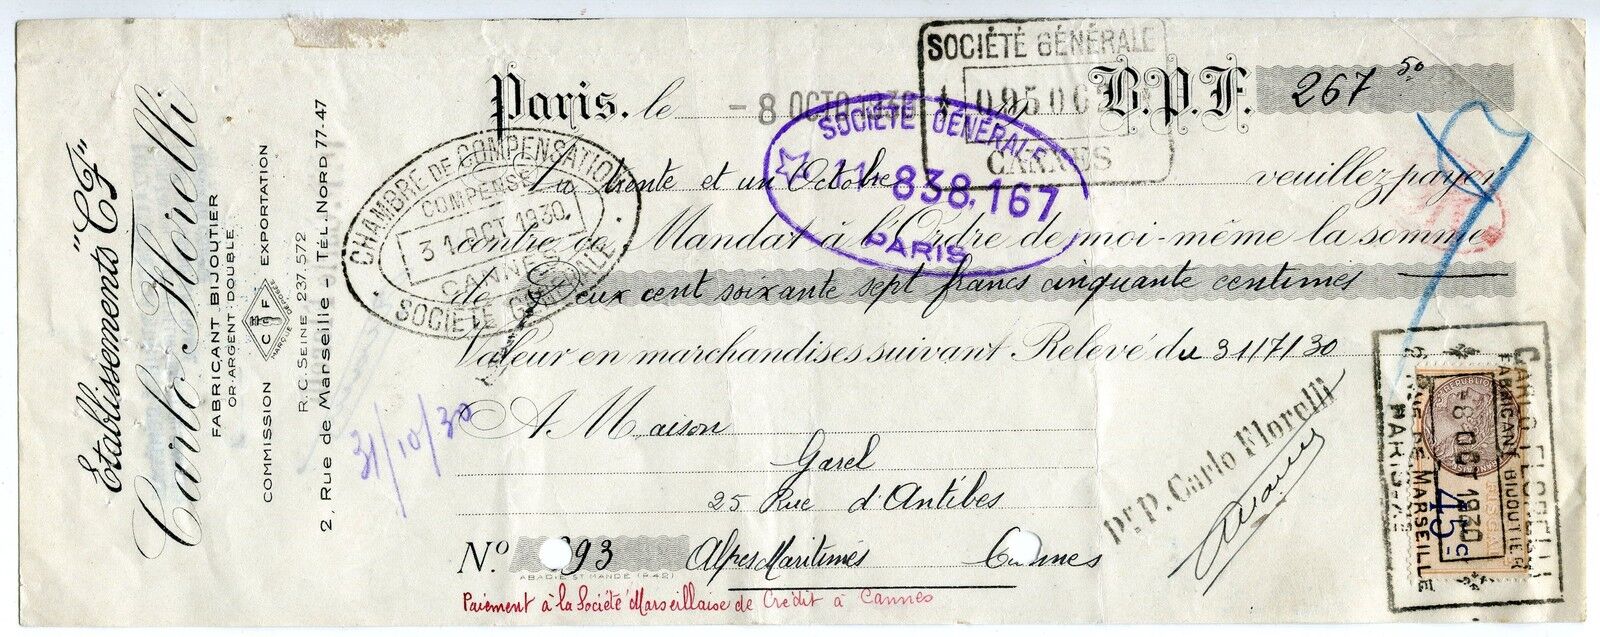 Établissements "CF"
Carlo Florelli
FABRICANT BIJOUTIER
OR ARGENT DOUBLE
COMMISSION EXPORTATION
C F
MARQUE DÉPOSÉE
R.C. SEINE 237.572
2, Rue de Marseille - TÉL. NORD 77-47
Paris, le - 8 OCTO 1930 19 B.P.F. 267 50
SOCIÉTÉ GÉNÉRALE
CANNES
CHAMBRE DE COMPENSATION
COMPENSÉ
31 OCT 1930
CANNES
SOCIÉTÉ GÉNÉRALE
SOCIÉTÉ GÉNÉRALE
838.167
PARIS
La trente et un Octobre veuillez payer
contre ce Mandat à l'Ordre de moi-même la somme
de Deux cent soixante sept francs cinquante centimes
Valeur en marchandises suivant Relevé du 31/7/30
31/10/30
A Maison
Garel
25 Rue d'Antibes
Nº 93 Alpes Maritimes Cannes
ABADIE ST MANDÉ (P.42)
Paiement à la Société Marseillaise de Crédit à Cannes
Pr. P. Carlo Florelli
CARLO FLORELLI
FABRICANT BIJOUTIER
-8 OCT 1930
2, RUE DE MARSEILLE
PARIS-Xe
45 c